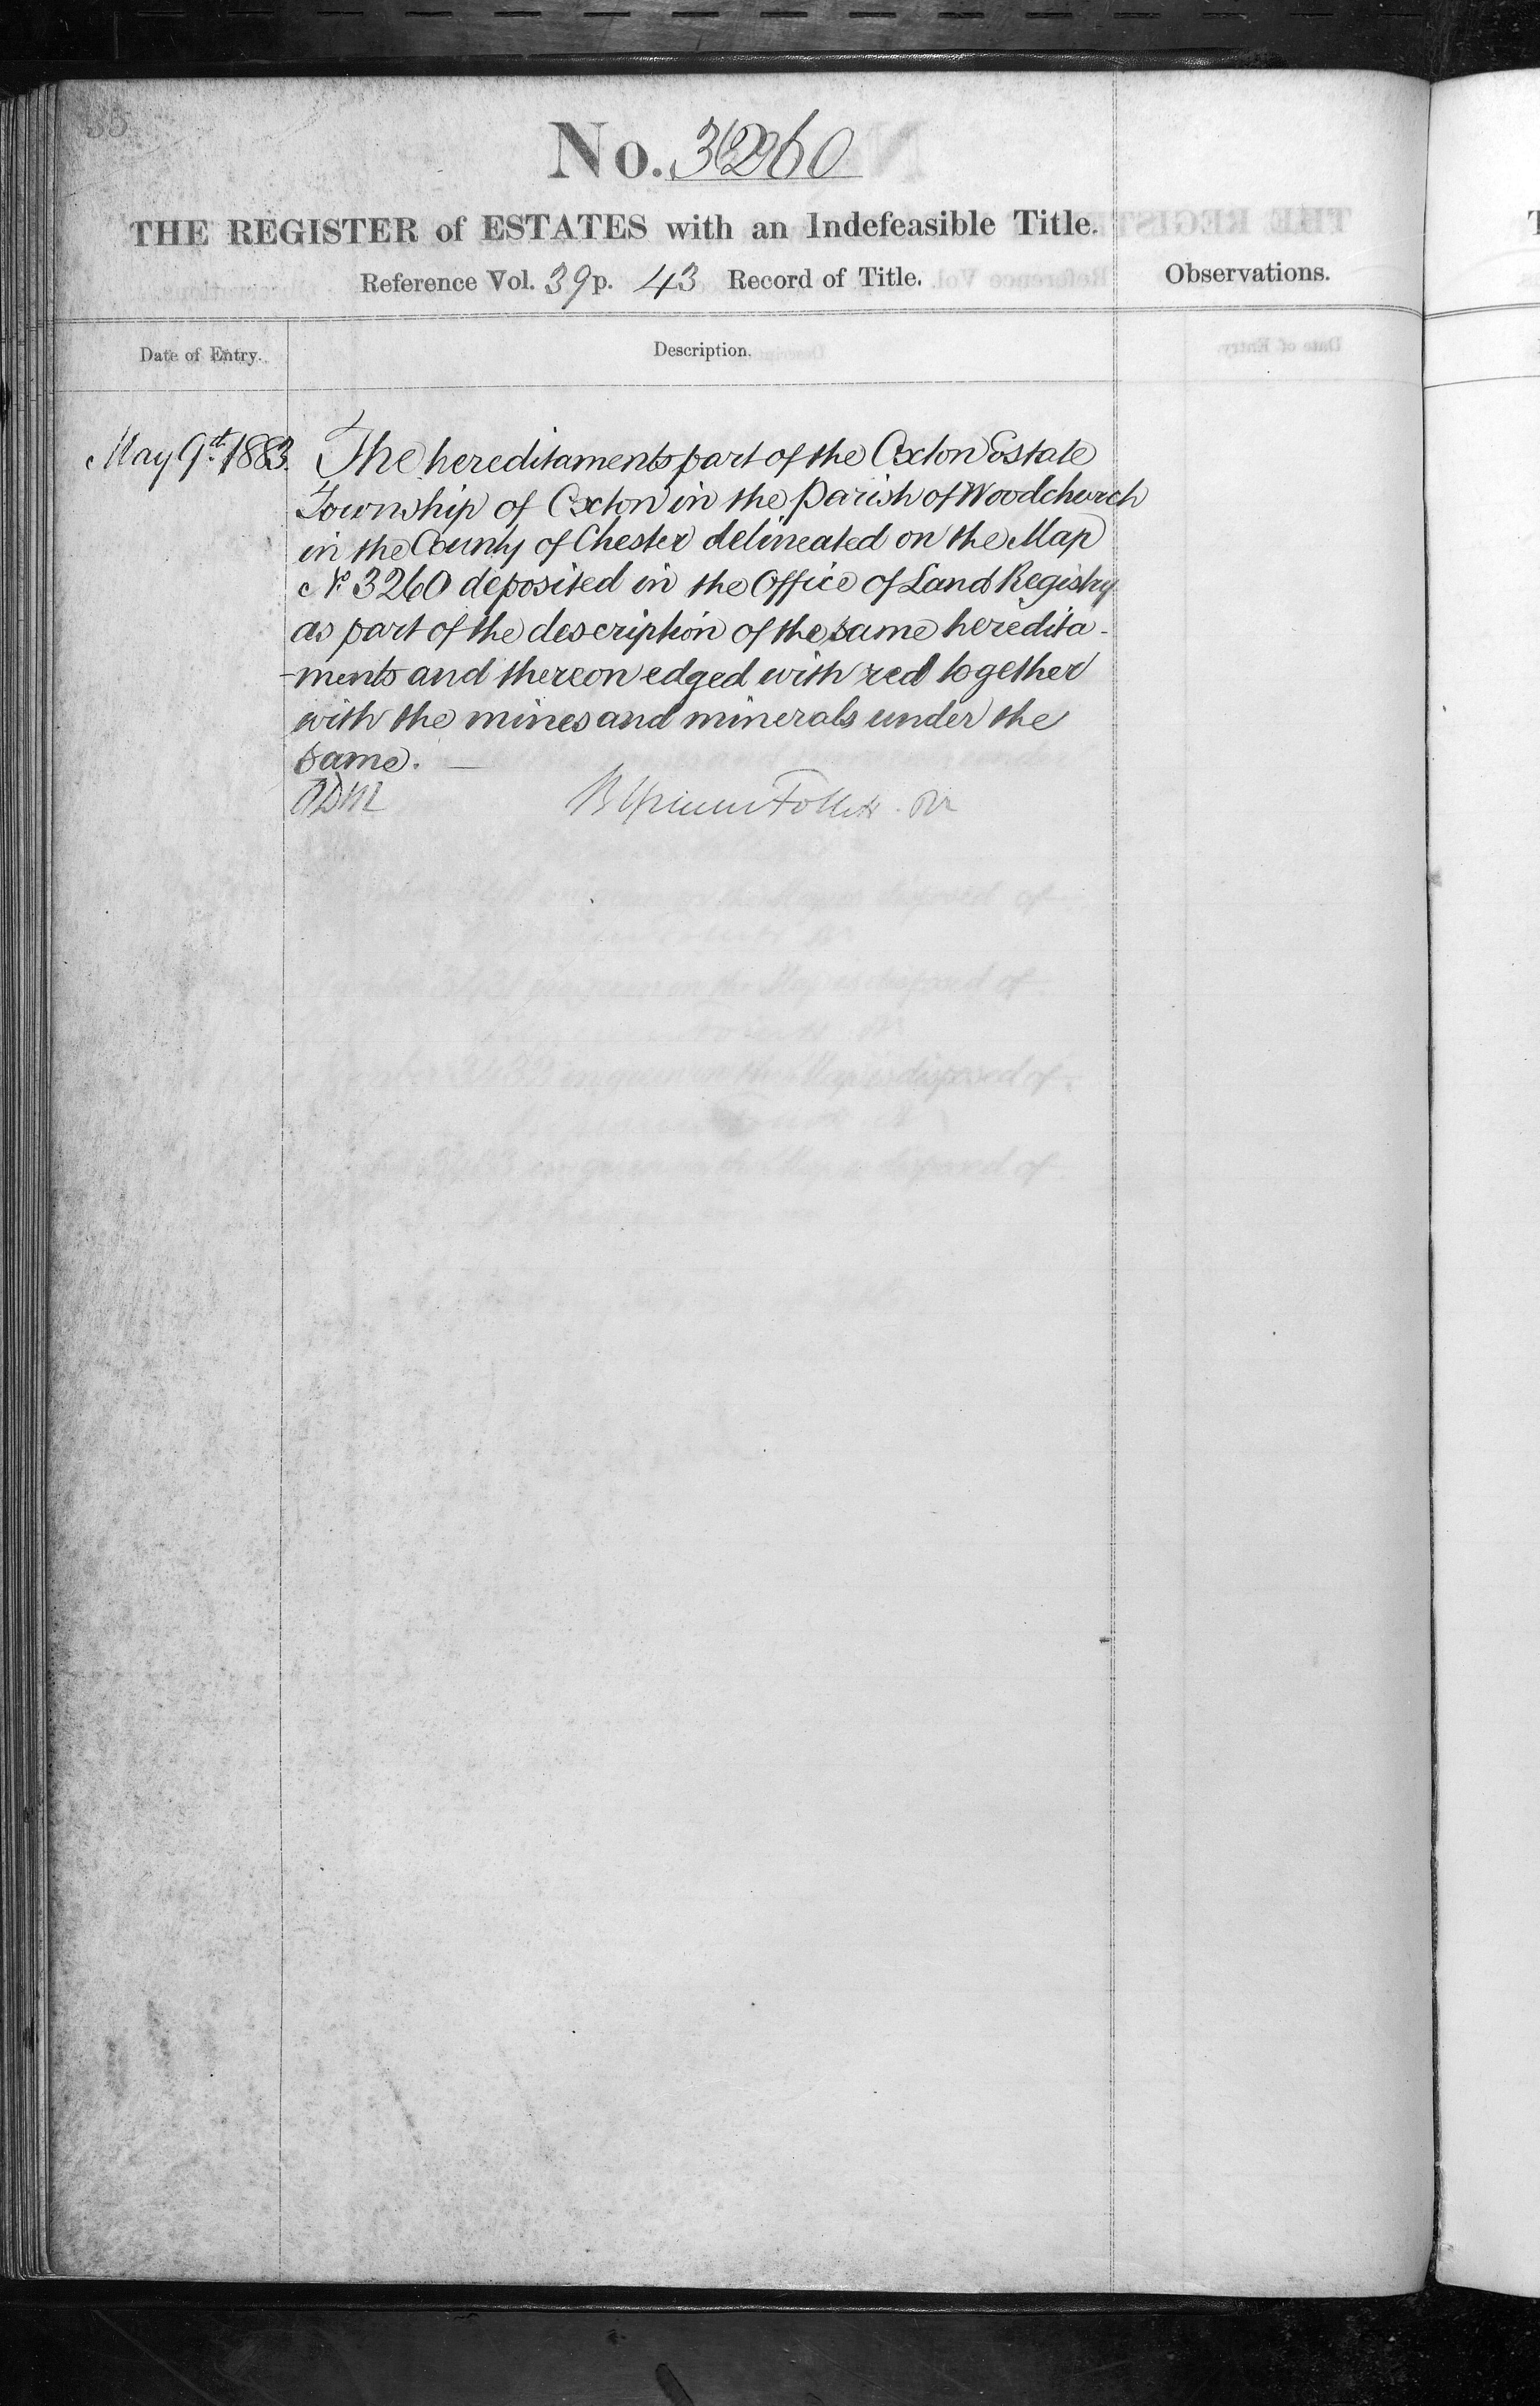 No. 3260
THE REGISTER of ESTATES with an Indefeasible Title.
Reference Vol. 39 p. 43 Record of Title.
Observations.
Date of Entry.
Description.
May 9th 1883.
The hereditaments part of the Oxton Estate
Township of Oxton in the Parish of Woodchurch
in the County of Chester delineated on the Map
No 3260 deposited in the Office of Land Registry
as part of the description of the same heredita-
-ments and thereon edged with red together
with the mines and minerals under the
same. —
Follett